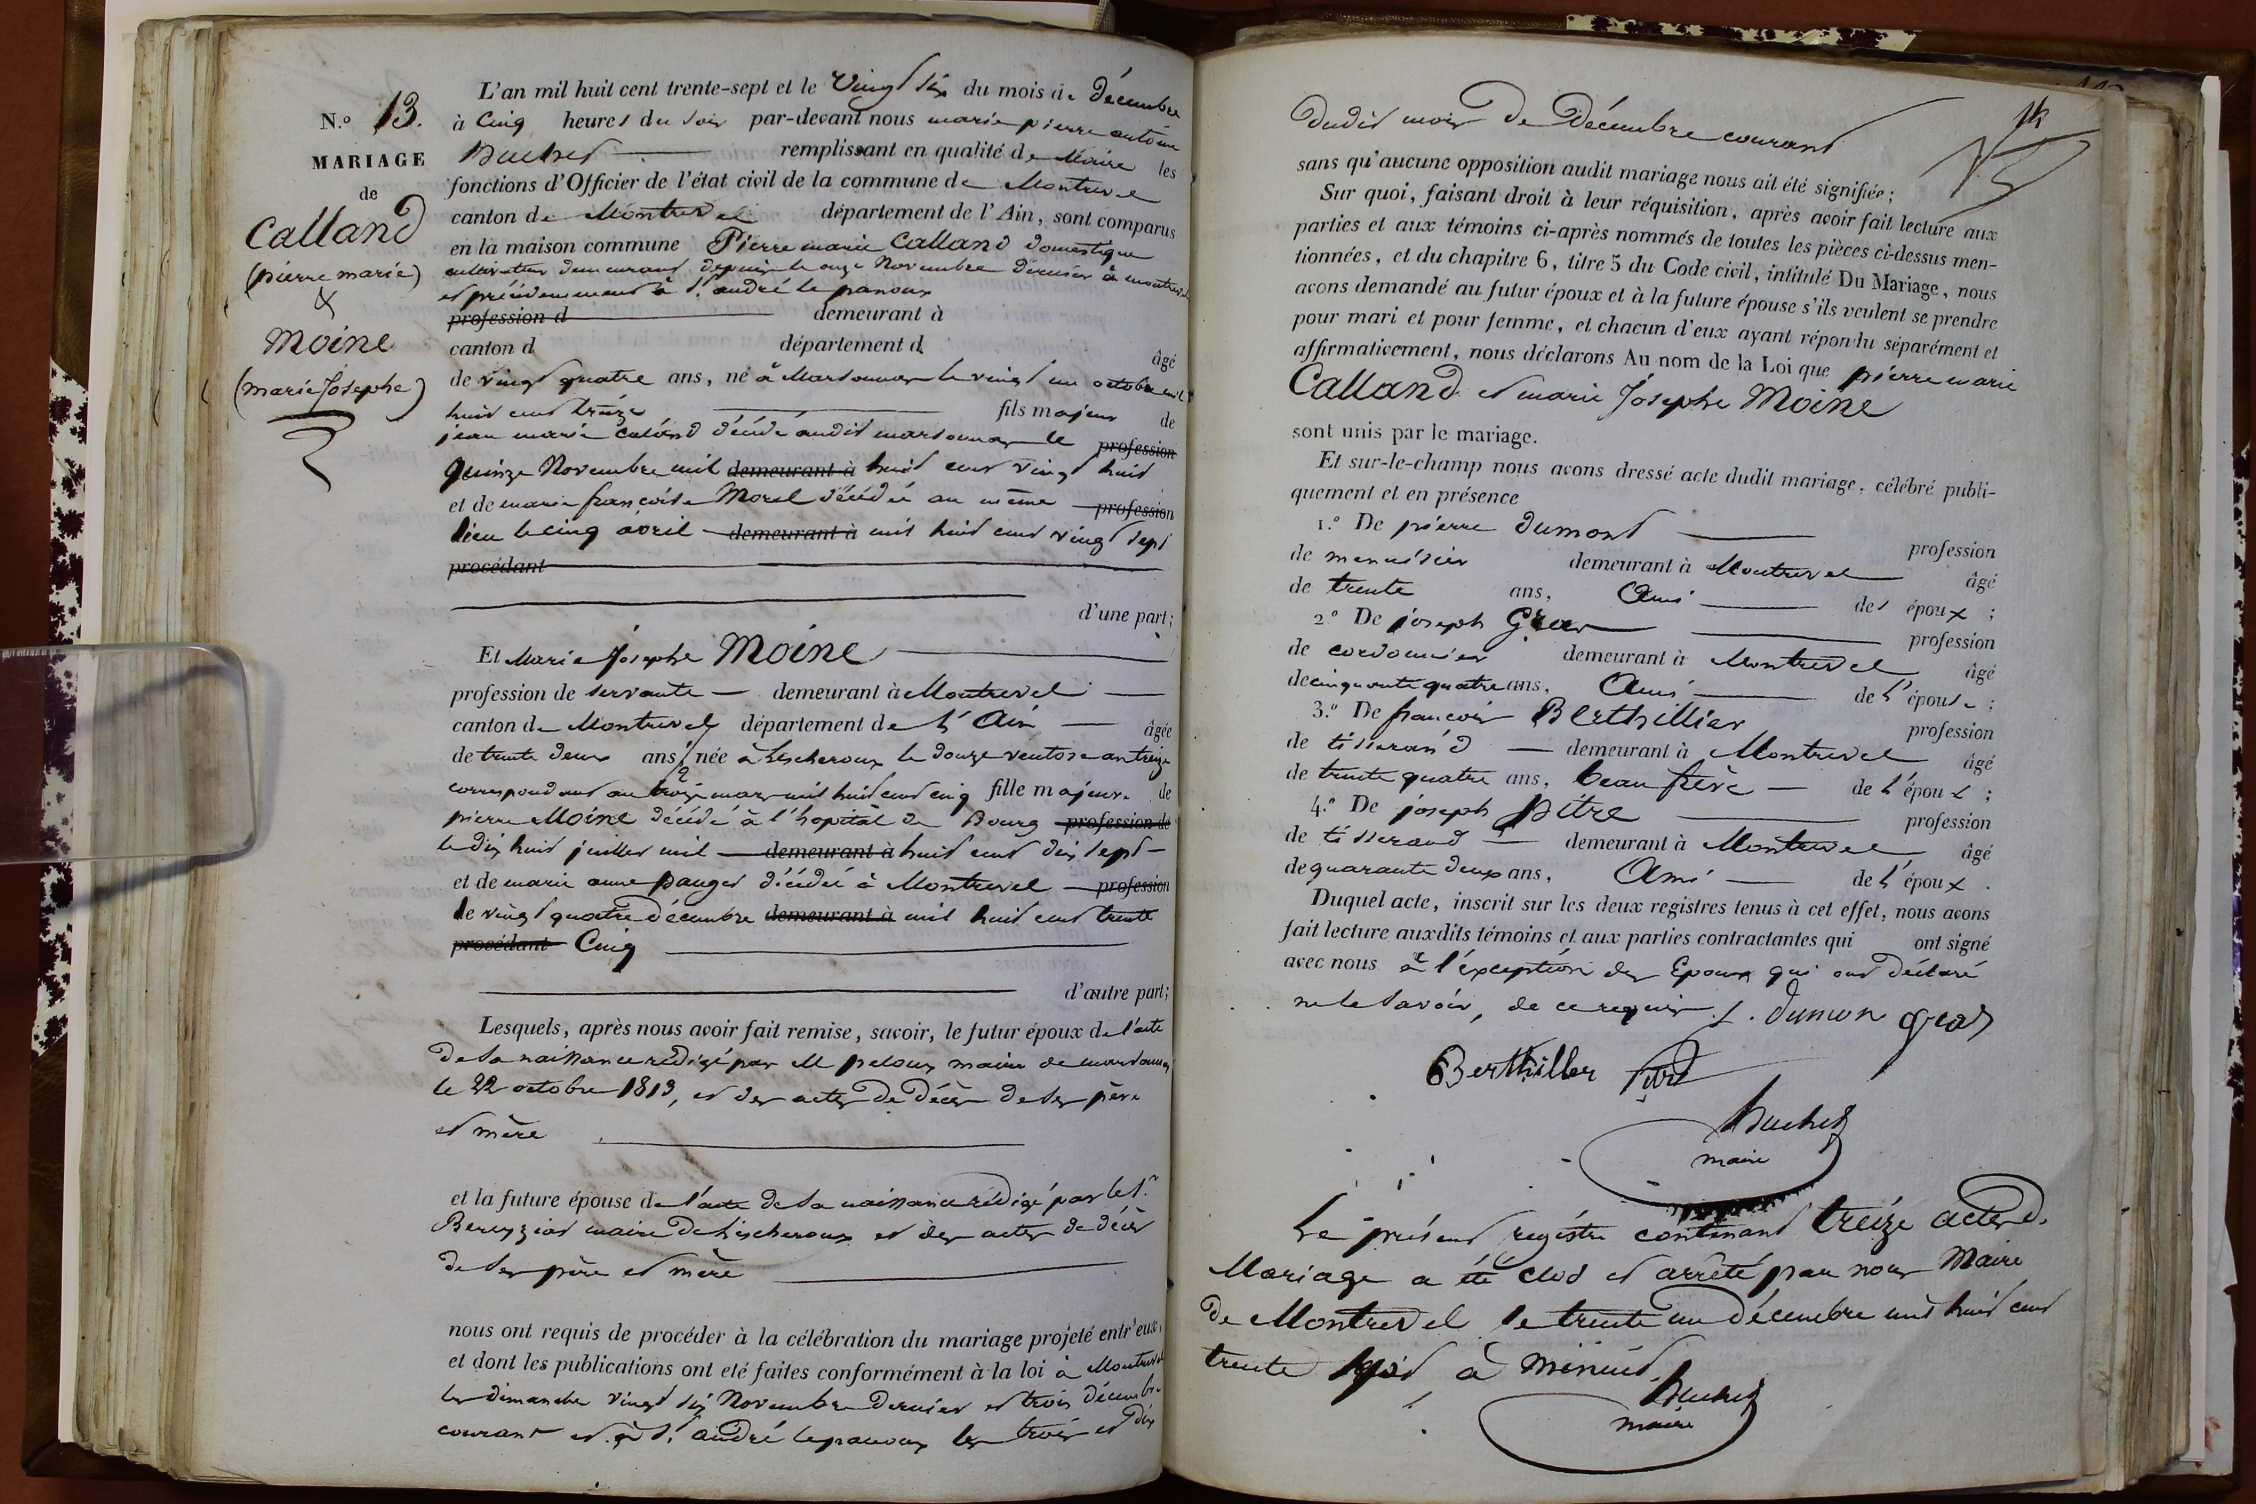 N.o 13.
MARIAGE
de
Calland
(pierre marie)
&
Moine
(marie Josephe)
L'an mil huit cent trente-sept et le vingt six du mois de décembre
à cinq heures du soir par-devant nous marie pierre antoine
Buchet remplissant en qualité de Maire les
fonctions d'Officier de l'état civil de la commune de Montrevel
canton de Montrevel département de l'Ain, sont comparus
en la maison commune Pierre marie Calland domestique
cultivateur demeurant depuis le onze Novembre dernier à montrevel
et précédemment à St. andré le panoux
profession d demeurant à
canton d département d âgé
de vingt quatre ans, né à Marsonnas le vingt un octobre mil
huit cent treize fils majeur de
jean marie caland décédé audit marsonnas le profession
quinze Novembre mil demeurant à huit cent vingt huit
et de marie françoise Morel décédée au même profession
lieu le cinq avril demeurant à mil huit cent vingt sept
procédant
d'une part;
Et Marie Josephe Moine
profession de servante demeurant à Montrevel
canton de Montrevel département de l'Ain âgée
de trente deux ans, née à Lescheroux le douze ventose an treize
correspondant au trois mars mil huit cent cinq fille majeure de
pierre Moine décédé à l'hopital de Bourg profession de
le dix huit juillet mil demeurant à huit cent dix sept
et de marie anne pauget décédée à Montrevel profession
le vingt quatre décembre demeurant à mil huit cent trente
procédant Cinq
d'autre part;
Lesquels, après nous avoir fait remise, savoir, le futur époux de l'acte
de sa naissance rédigé par M peloux maire de marsonnas
le 22 octobre 1813, et des actes de décès de ses père
et mère
et la future épouse de l'acte de sa naissance rédigé par le Sr.
Bereyziat maire de Lescheroux et des actes de décès
de ses père et mère
nous ont requis de procéder à la célébration du mariage projeté entr'eux,
et dont les publications ont été faites conformément à la loi à Montrevel
les dimanche vingt six Novembre dernier et trois décembre
courant et à St. andré lepanoux les trois et dix
dudit mois de Décembre courant
sans qu'aucune opposition audit mariage nous ait été signifiée;
Sur quoi, faisant droit à leur réquisition, après avoir fait lecture aux
parties et aux témoins ci-après nommés de toutes les pièces ci-dessus men-
tionnées, et du chapitre 6, titre 5 du Code civil, intitulé Du Mariage, nous
avons demandé au futur époux et à la future épouse s'ils veulent se prendre
pour mari et pour femme, et chacun d'eux ayant répondu séparément et
affirmativement, nous déclarons Au nom de la Loi que pierre marie
Calland et marie Josephe Moine
sont unis par le mariage.
Et sur-le-champ nous avons dressé acte dudit mariage, célébré publi-
quement et en présence
1.o De pierre dumont profession
de menuisier demeurant à Montrevel âgé
de trente ans, Ami des époux;
2o De joseph Gras profession
de cordonnier demeurant à Montrevel âgé
de cinquante quatre ans, Ami de l'épouse;
3.o De françois Berthillier profession
de tisserand demeurant à Montrevel âgé
de trente quatre ans, beau frère de l'époux;
4.o De joseph pitre profession
de tisserand demeurant à Montrevel âgé
de quarante deux ans, Ami de l'époux.
Duquel acte, inscrit sur les deux registres tenus à cet effet, nous avons
fait lecture auxdits témoins et aux parties contractantes qui ont signé
avec nous à l'exception des Epoux qui ont déclaré
ne le savoir, de ce requis. dumon gras
Berthiller
Buchet
maire
Le présent registre contenant treize actes de
Mariage a été clos et arrêté par nous Maire
de Montrevel le trente un décembre mil huit cent
trente sept à minuit,
Buchet
maire